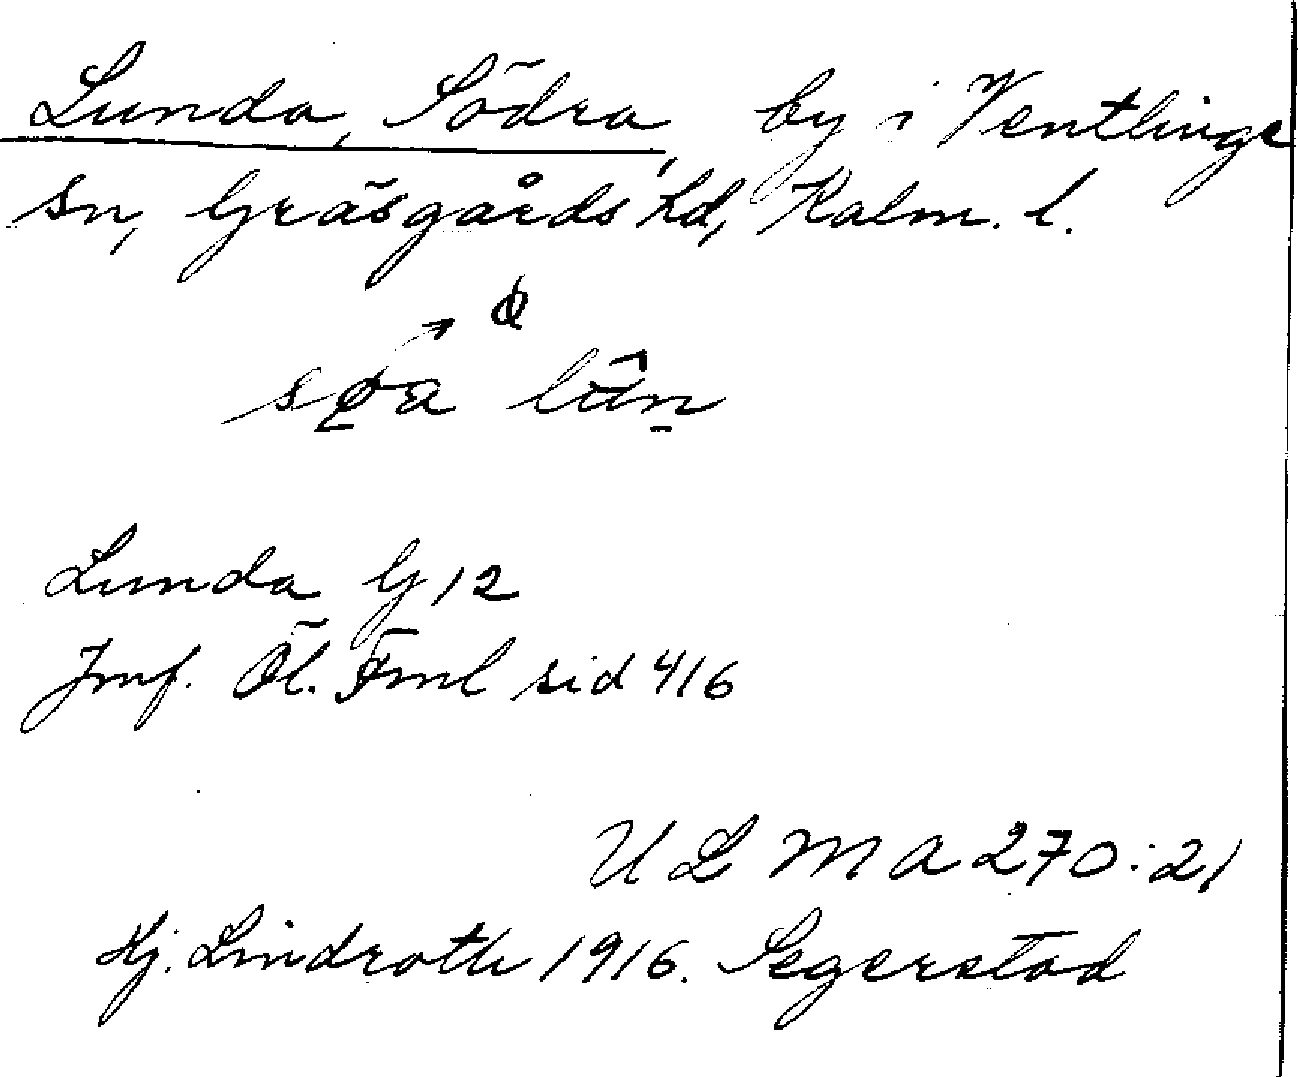 Lunda, Södra, by i Ventlinge
sn, Gräsgårds hd, Kalm. l.
Lunda G 12
Jmf. Öl. Fml sid 416
U L M A 270:21
Hj. Lindroth 1916. Segerstad